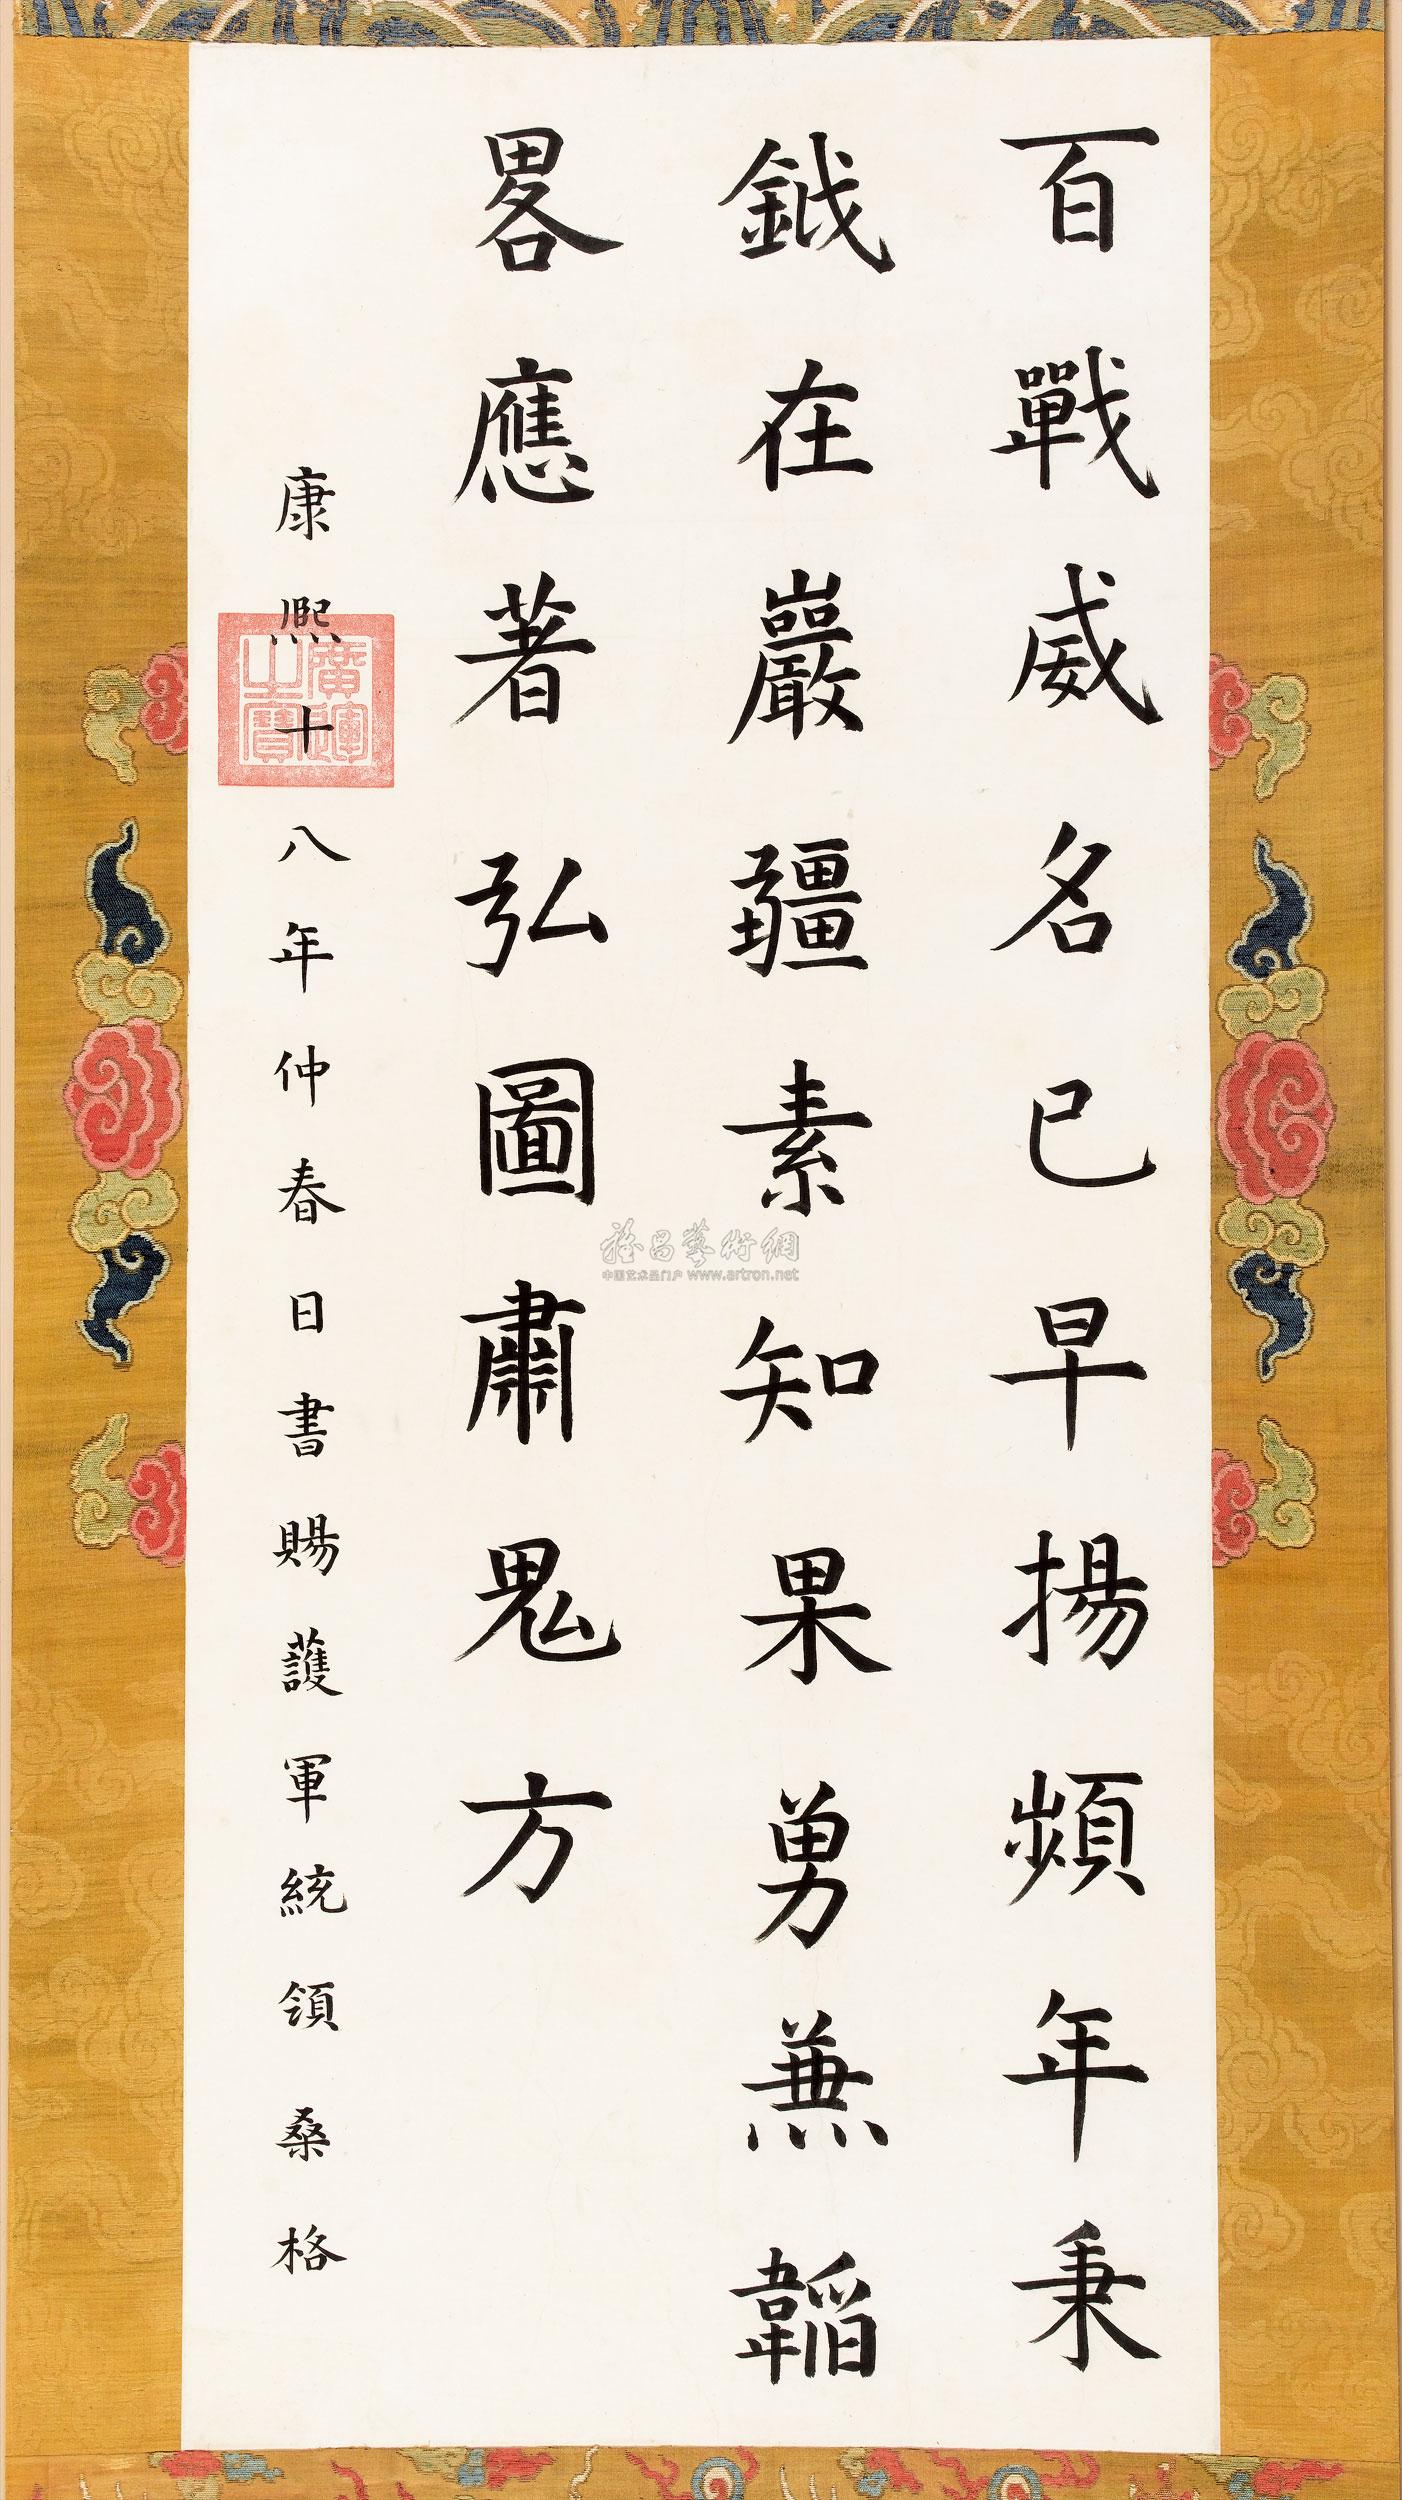 百戰威名已早揚頻年秉
鉞在巖疆素知果勇兼韜
畧應著弘圖肅鬼方
康熙十八年仲春日書賜護軍統領桑格
廣運之寶
雅昌藝術網
中国艺术品门户 www.artron.net